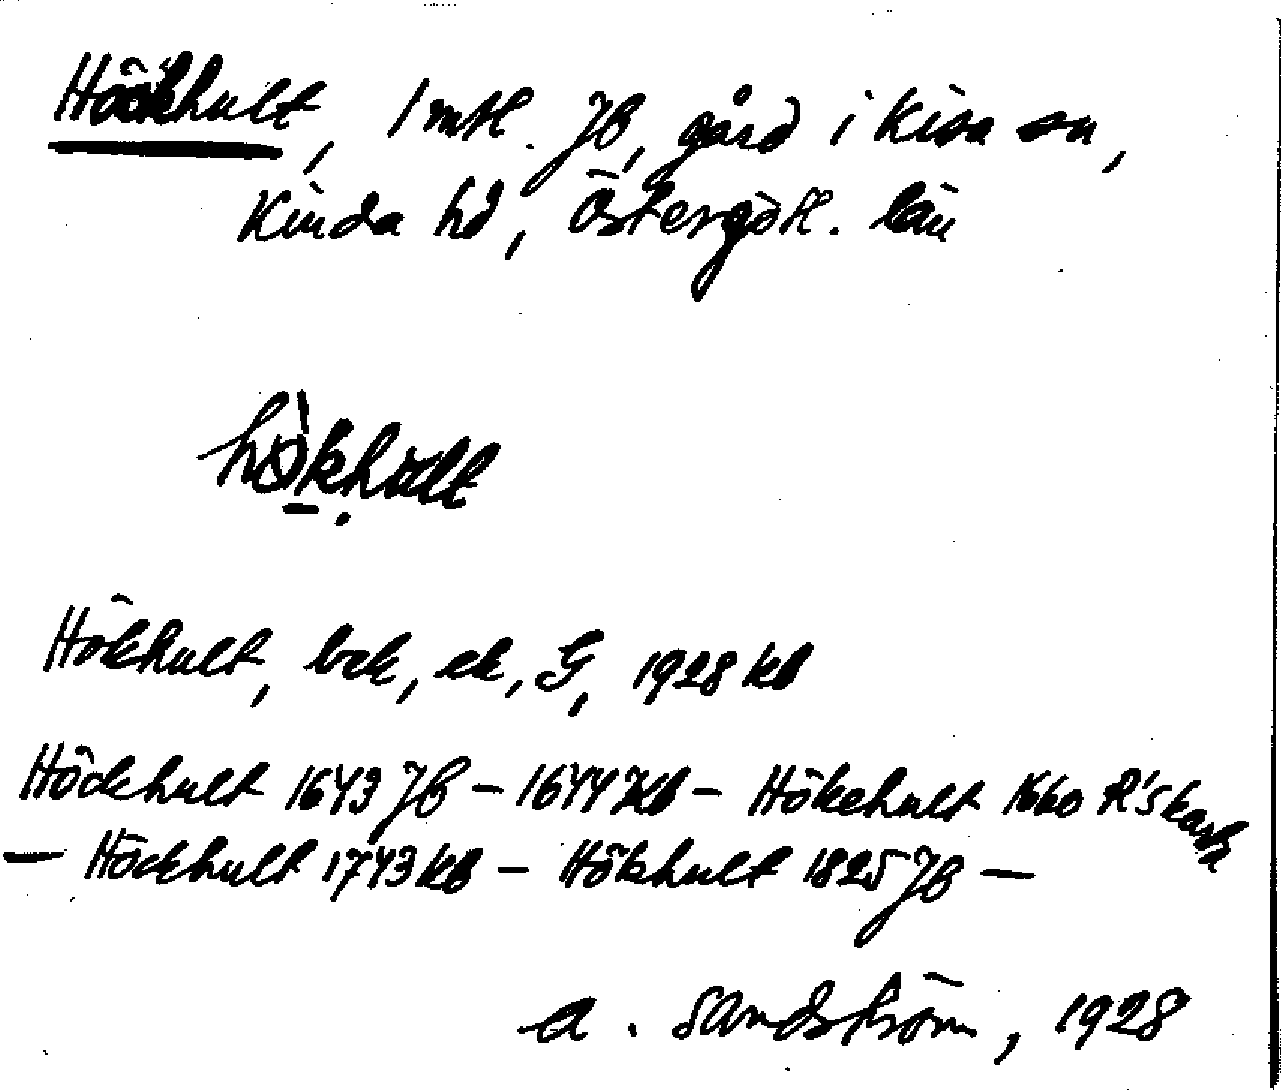 Hökhult, 1 mtl. JB, gård i Kisa sn,
Kinda hd, Östergötl. län
hökhult
Hökhult, bck, ek, G, 1928 kb
Höckhult 1643 JB – 1644 Kb – Hökehult 1660 R's karta
– Höckhult 1743 kb – Hökhult 1825 JB –
A. Sandström, 1928